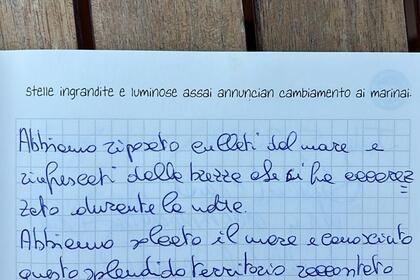 Stelle ingrandite e luminose assai annuncian cambiamento ai marinai.
Abbiamo riposato cullati dal mare e
rinfrescati dalla brezza che ci ha accarez
zato durante la notte.
Abbiamo solcato il mare e conosciuto
questo splendido territorio raccontato